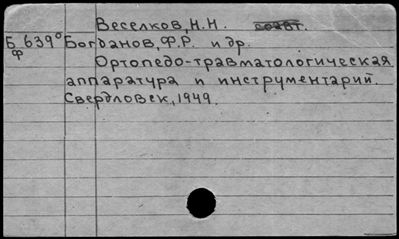 Веселков, Н.Н. соавт.
Б 639° Богданов, Ф.Р. и др.
Ф
Ортопедо-травматологическая
аппаратура и инструментарий.
Свердловск, 1949.